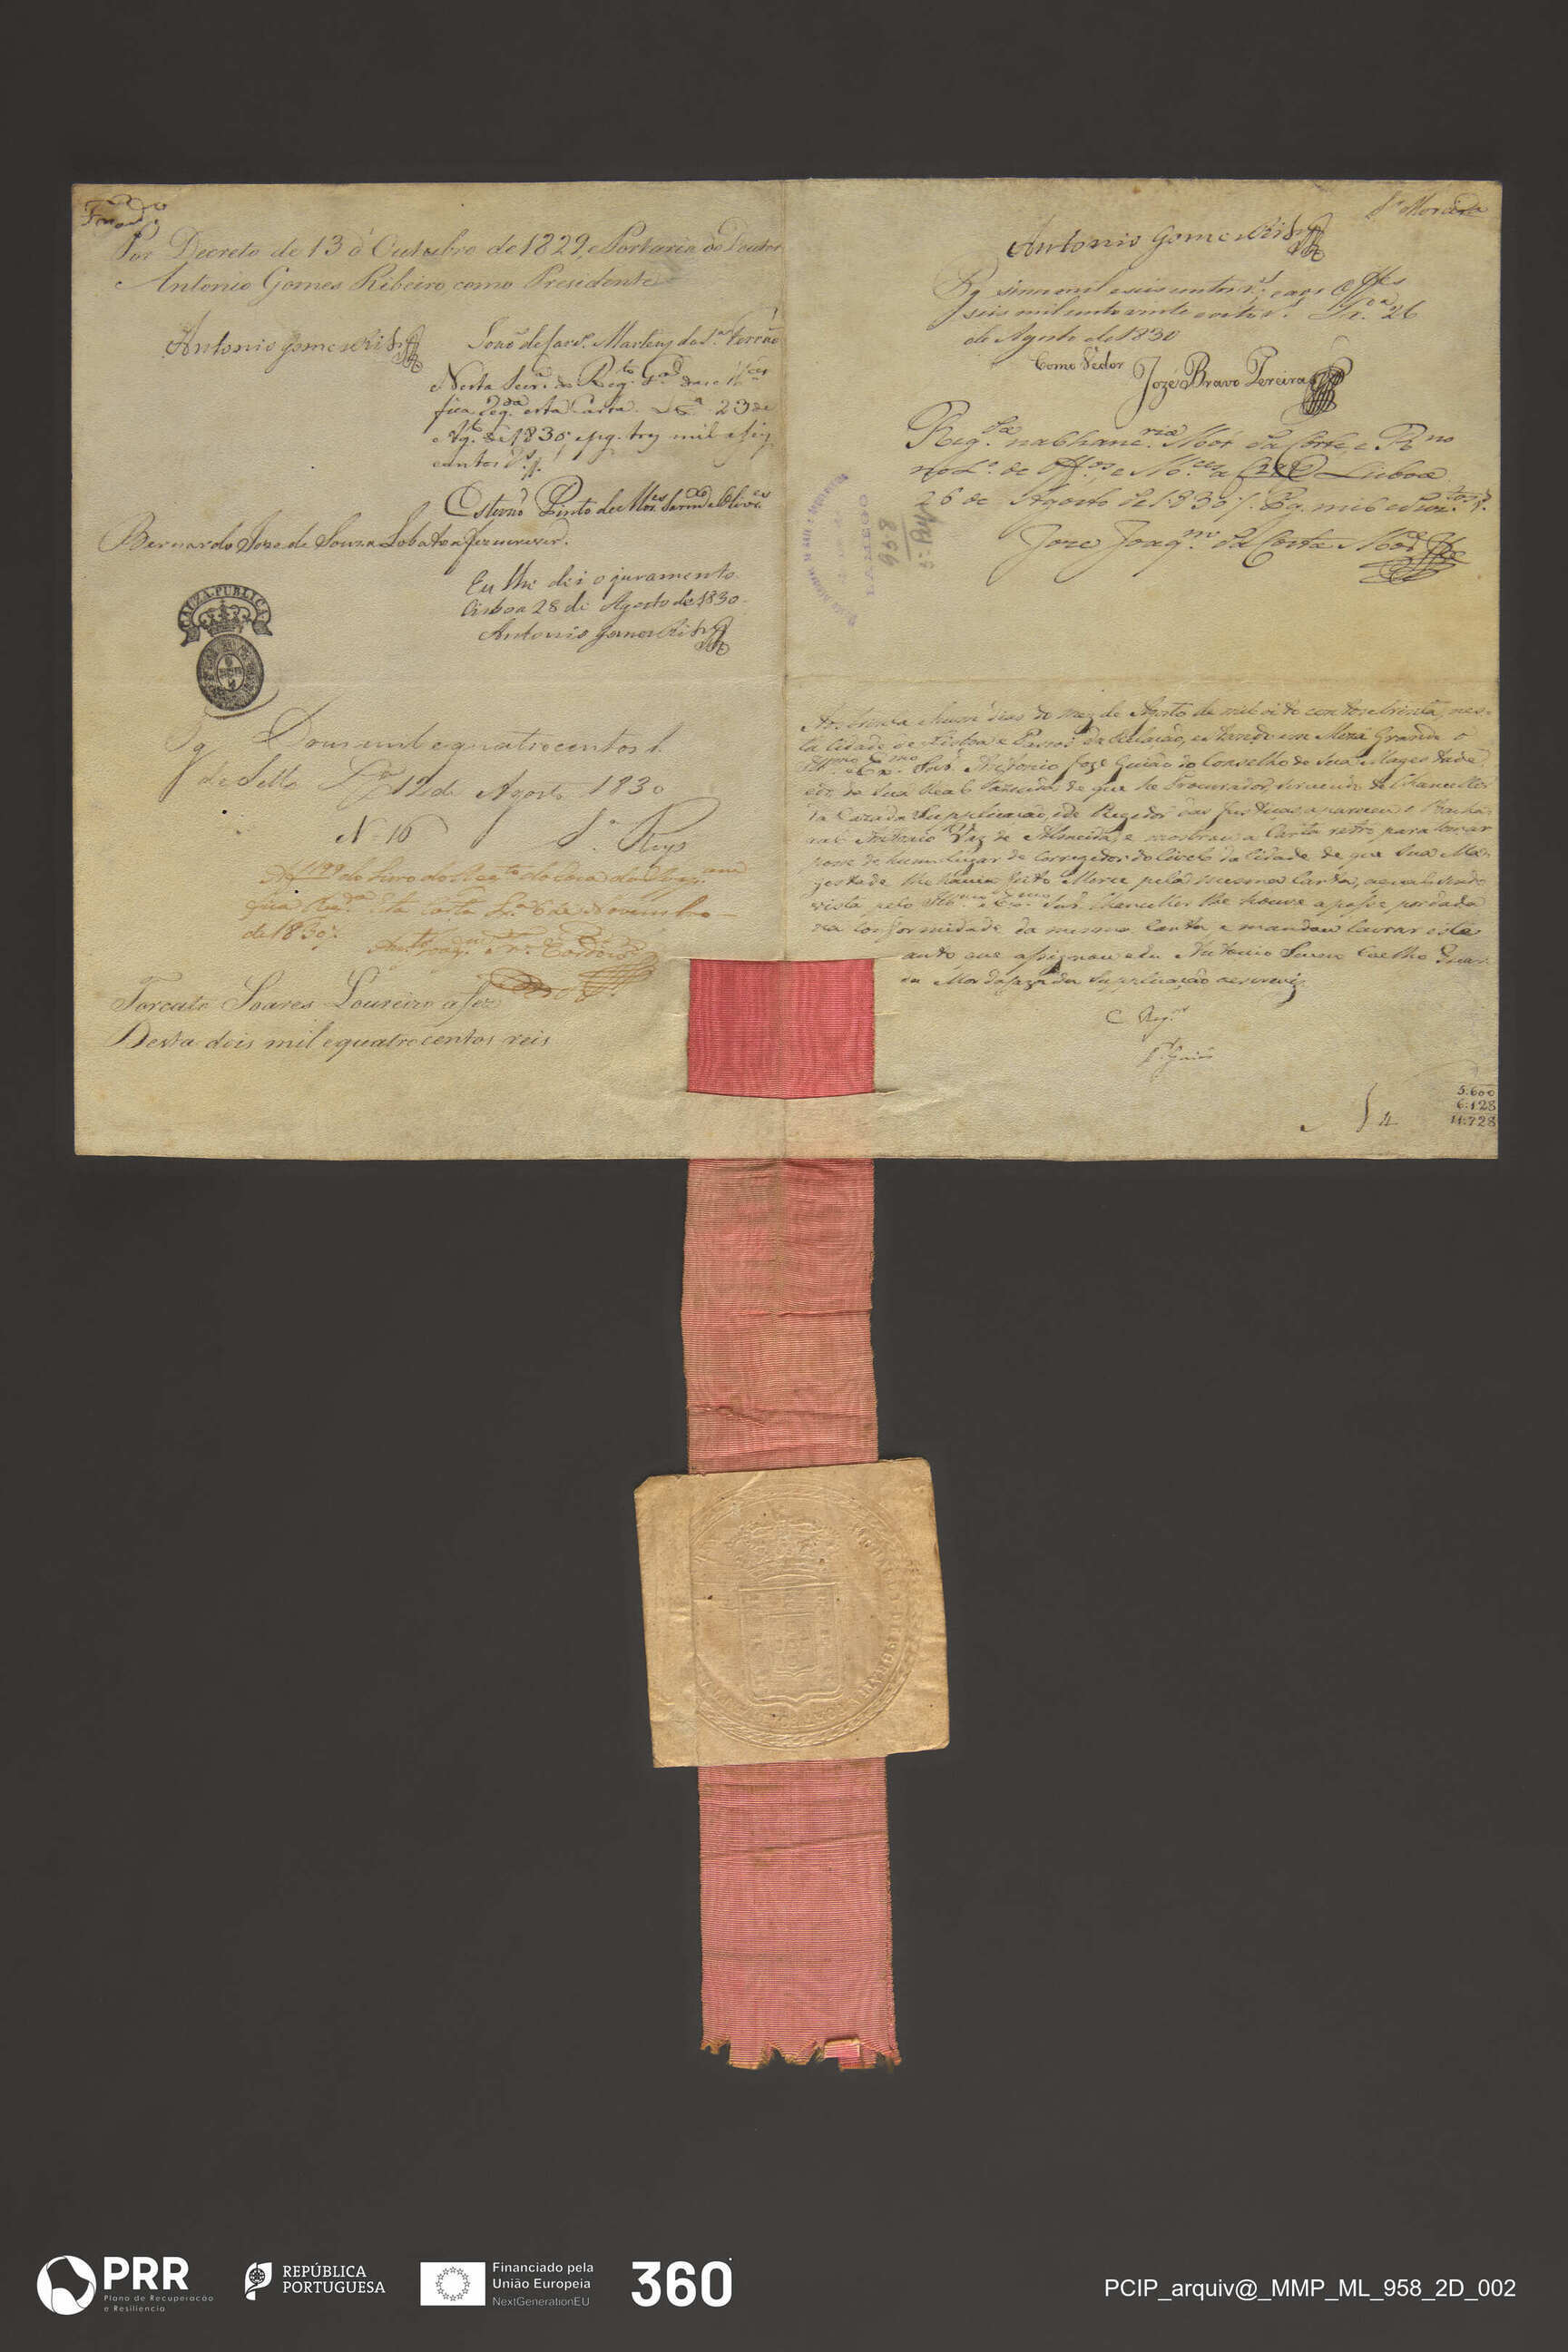 Por Decreto de 13 d'Outubro de 1829, e Portaria do Doutor
Antonio Gomes Ribeiro como Presidente
Antonio Gomes Rib.ro
João de
Martens da S.a Ferrão
Nesta Secr.a do Reg.to G.al das M.ces
fica reg.da esta Carta. Lx.a 23 de
Ag.to de 1830, e pg. trez mil e seis
centos r.s
Estevão Pinto de Mor.es Sarm.to
Bernardo Joze de Souza Lobato a fez escrever.
Eu lhe dei o juramento
Lisboa 28 de Agosto de 1830
Antonio Gomes Rib.ro
CAUZA PUBLICA
Pg. Dous mil e quatrocentos r.
de Sello Lx.a 19 de Agosto 1830
N. 16 S.a Reys
do Livro do Reg.to
fica Reg.da esta Carta Lx.a 6 de Novembro
de 1830
Torcato Soares Loureiro a fez
Desta dois mil e quatrocentos reis
Antonio Gomes Rib.ro
Pg. sinco mil e seis centos r.s, e aos Off.es
seis mil cento vinte e oito r.s Lx.a 26
de Agosto de 1830
Como Vedor
Jozé Bravo Pereira
Reg.da na Chanc.ria Mór da Corte, e R.no
no L.o de Off.os, e M.ces a f. Lisboa
26 de Agosto de 1830. Pg. mil e
Joze Joaq.m da Costa
LAMEGO
958
Aos trinta e hum dias do mez de Agosto de mil oito centos e trinta, nes-
ta Cidade de Lisboa e Passos da Relação, estando em Meza Grande o
Ill.mo e Ex.mo Snr. Antonio Joze Guião do Conselho de Sua Magestade
e do da Sua Real Fazenda de que he Procurador, servindo de Chanceller
da Caza da Supplicação, e de Regedor das Justiças appareceu o Bacha-
rel Antonio Vaz de Almeida, e mostrou a Carta retro para tomar
posse de hum lugar de Corregedor do Civel da Cidade de que Sua Ma-
gestade lhe havia feito Merce pela mesma Carta, a qual sendo
vista pelo Ill.mo e Ex.mo Snr. Chanceller lhe houve a posse por dada
na conformidade da mesma Carta, e mandou lavrar este
auto que assignou e eu Antonio Coelho Guar-
da Mor da Caza da Supplicação o escrevi
Guião
5:600
6:128
11:728
4
PRR
Plano de Recuperação
e Resiliência
REPÚBLICA
PORTUGUESA
Financiado pela
União Europeia
NextGenerationEU
360
PCIP_arquiv@_MMP_ML_958_2D_002